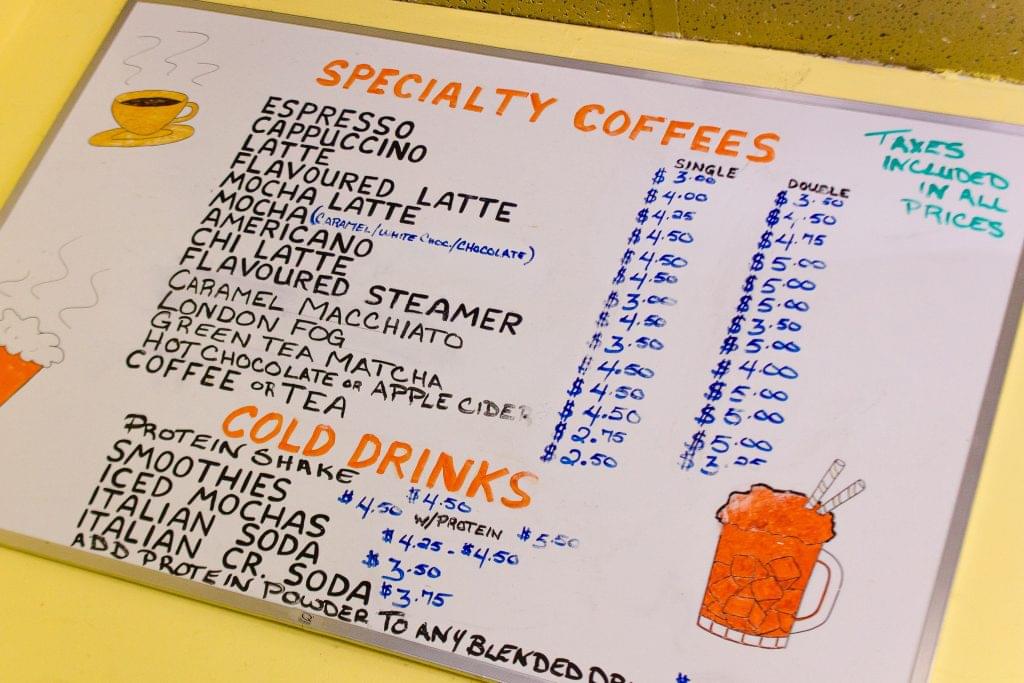 SPECIALTY COFFEES
SINGLE DOUBLE
ESPRESSO $3.00 $3.50
CAPPUCCINO $4.00 $4.50
LATTE $4.25 $4.75
FLAVOURED LATTE $4.50 $5.00
MOCHA LATTE $4.50 $5.00
MOCHA (CARAMEL/WHITE CHOC/CHOCOLATE) $4.50 $5.00
AMERICANO $3.00 $3.50
CHI LATTE $4.50 $5.00
FLAVOURED STEAMER $3.50 $4.00
CARAMEL MACCHIATO $4.50 $5.00
LONDON FOG $4.50 $5.00
GREEN TEA MATCHA $4.50 $5.00
HOT CHOCOLATE OR APPLE CIDER $2.75 $3.25
COFFEE OR TEA $2.50
TAXES
INCLUDED
IN ALL
PRICES
COLD DRINKS
PROTEIN SHAKE $4.50
SMOOTHIES $4.50 W/PROTEIN $5.50
ICED MOCHAS $4.25 - $4.50
ITALIAN SODA $3.50
ITALIAN CR. SODA $3.75
ADD PROTEIN POWDER TO ANY BLENDED $